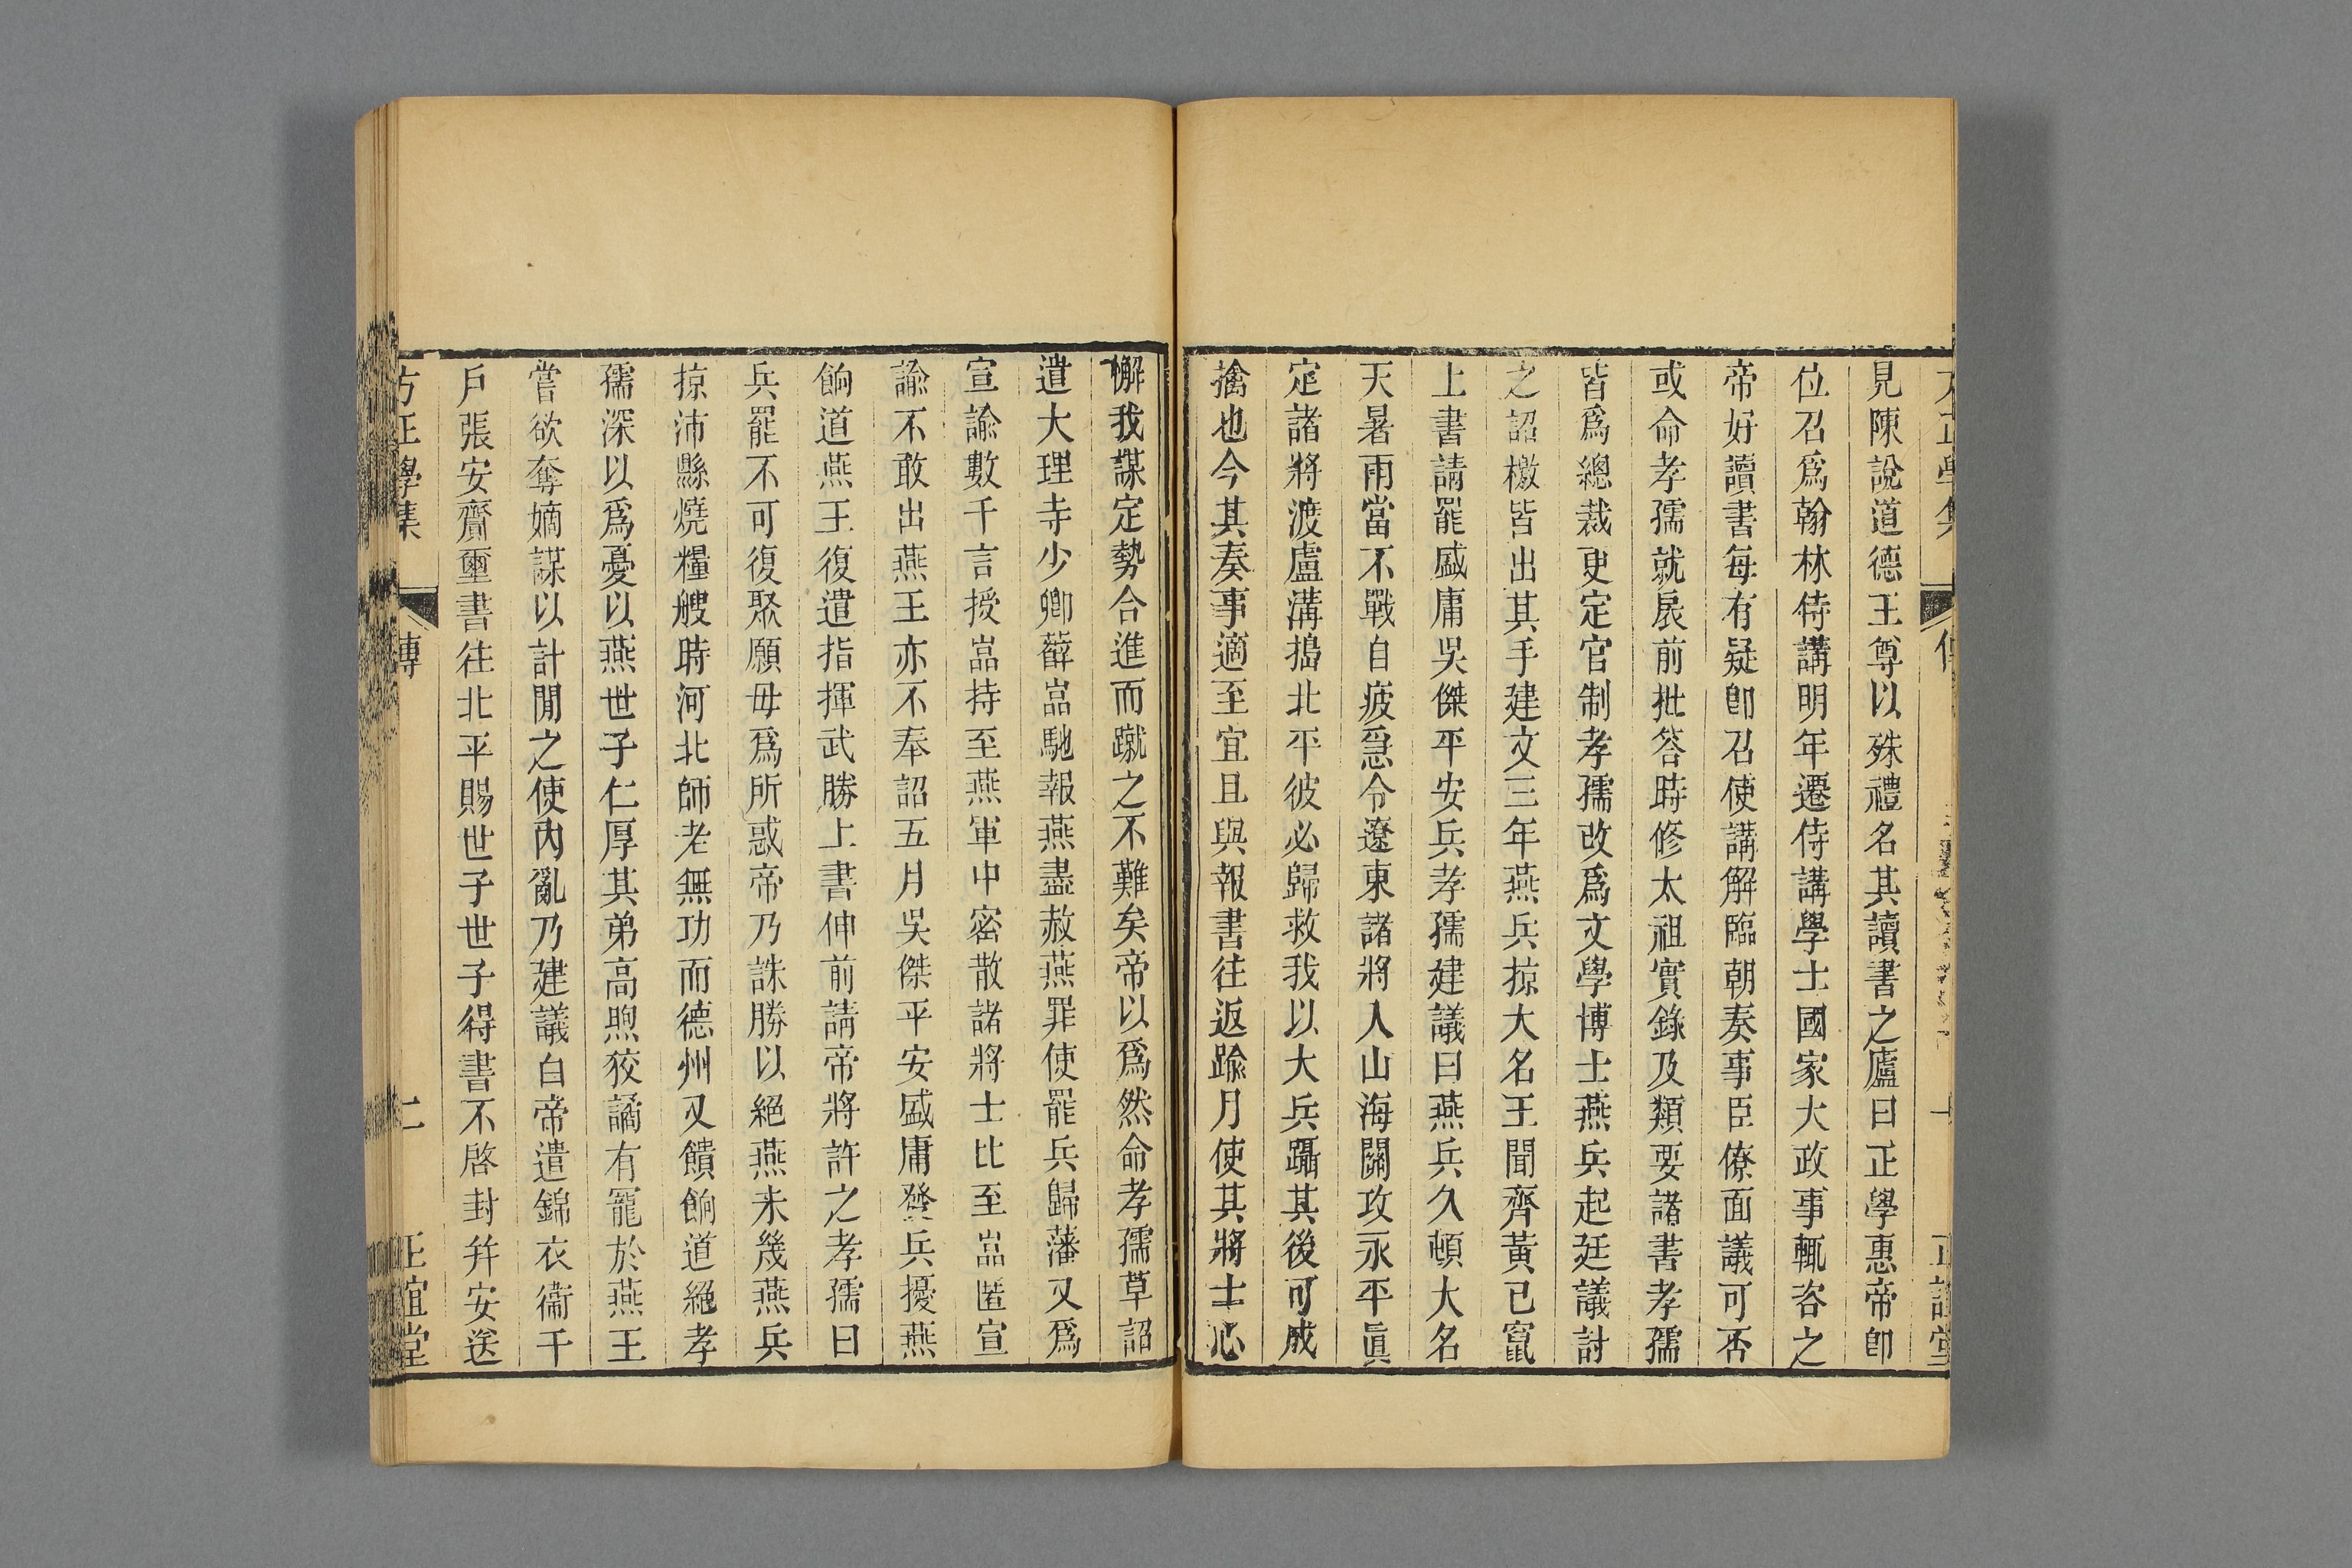 見陳說道德王尊以殊禮名其讀書之廬曰正學惠帝卽
位召爲翰林侍講明年遷侍講學士國家大政事輒咨之
帝好讀書每有疑卽召使講解臨朝奏事臣僚面議可否
或命孝孺就扆前批答時修太祖實錄及類要諸書孝孺
皆爲總裁更定官制孝孺改爲文學博士燕兵起廷議討
之詔檄皆出其手建文三年燕兵掠大名王聞齊黃已竄
上書請罷盛庸吳傑平安兵孝孺建議曰燕兵久頓大名
天暑雨當不戰自疲急令遼東諸將入山海關攻永平眞
定諸將渡盧溝搗北平彼必歸救我以大兵躡其後可成
擒也今其奏事適至宜且與報書往返踰月使其將士心
懈我謀定勢合進而蹴之不難矣帝以爲然命孝孺草詔
遣大理寺少卿薛嵓馳報燕盡赦燕罪使罷兵歸藩又爲
宣諭數千言授嵓持至燕軍中密散諸將士比至嵓匿宣
諭不敢出燕王亦不奉詔五月吳傑平安盛庸發兵擾燕
餉道燕王復遣指揮武勝上書伸前請帝將許之孝孺曰
兵罷不可復聚願毋爲所惑帝乃誅勝以絕燕未幾燕兵
掠沛縣燒糧艘時河北師老無功而德州又饋餉道絕孝
孺深以爲憂以燕世子仁厚其弟高煦狡譎有寵於燕王
嘗欲奪嫡謀以計閒之使內亂乃建議白帝遣錦衣衞千
戶張安齎璽書往北平賜世子世子得書不啓封幷安送
方正學集
傳
二
正誼堂